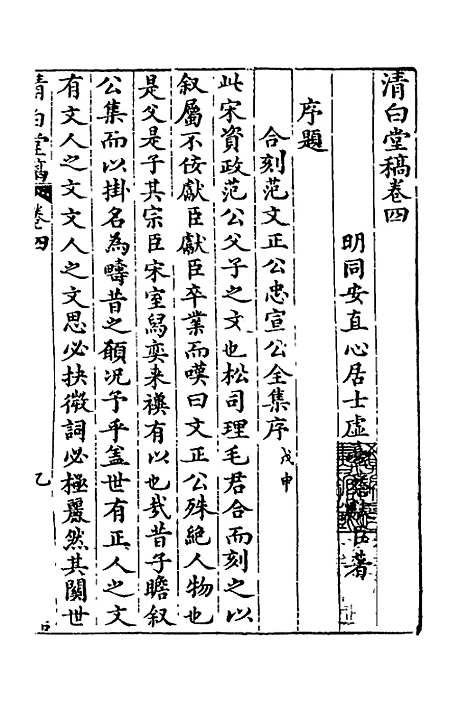 清白堂稿卷四
明同安直心居士虛臺蔡獻臣著
序題
合刻范文正公忠宣公全集序 戊申
此宋資政范公父子之文也松司理毛君合而刻之以
叙屬不佞獻臣獻臣卒業而嘆曰文正公殊絶人物也
是父是子其宗臣宋室舄奕来禩有以也哉昔子瞻叙
公集而以掛名為疇昔之願况予乎盖世有正人之文
有文人之文文人之文思必抉微詞必極麗然其關世
清白堂稿 卷四 乙